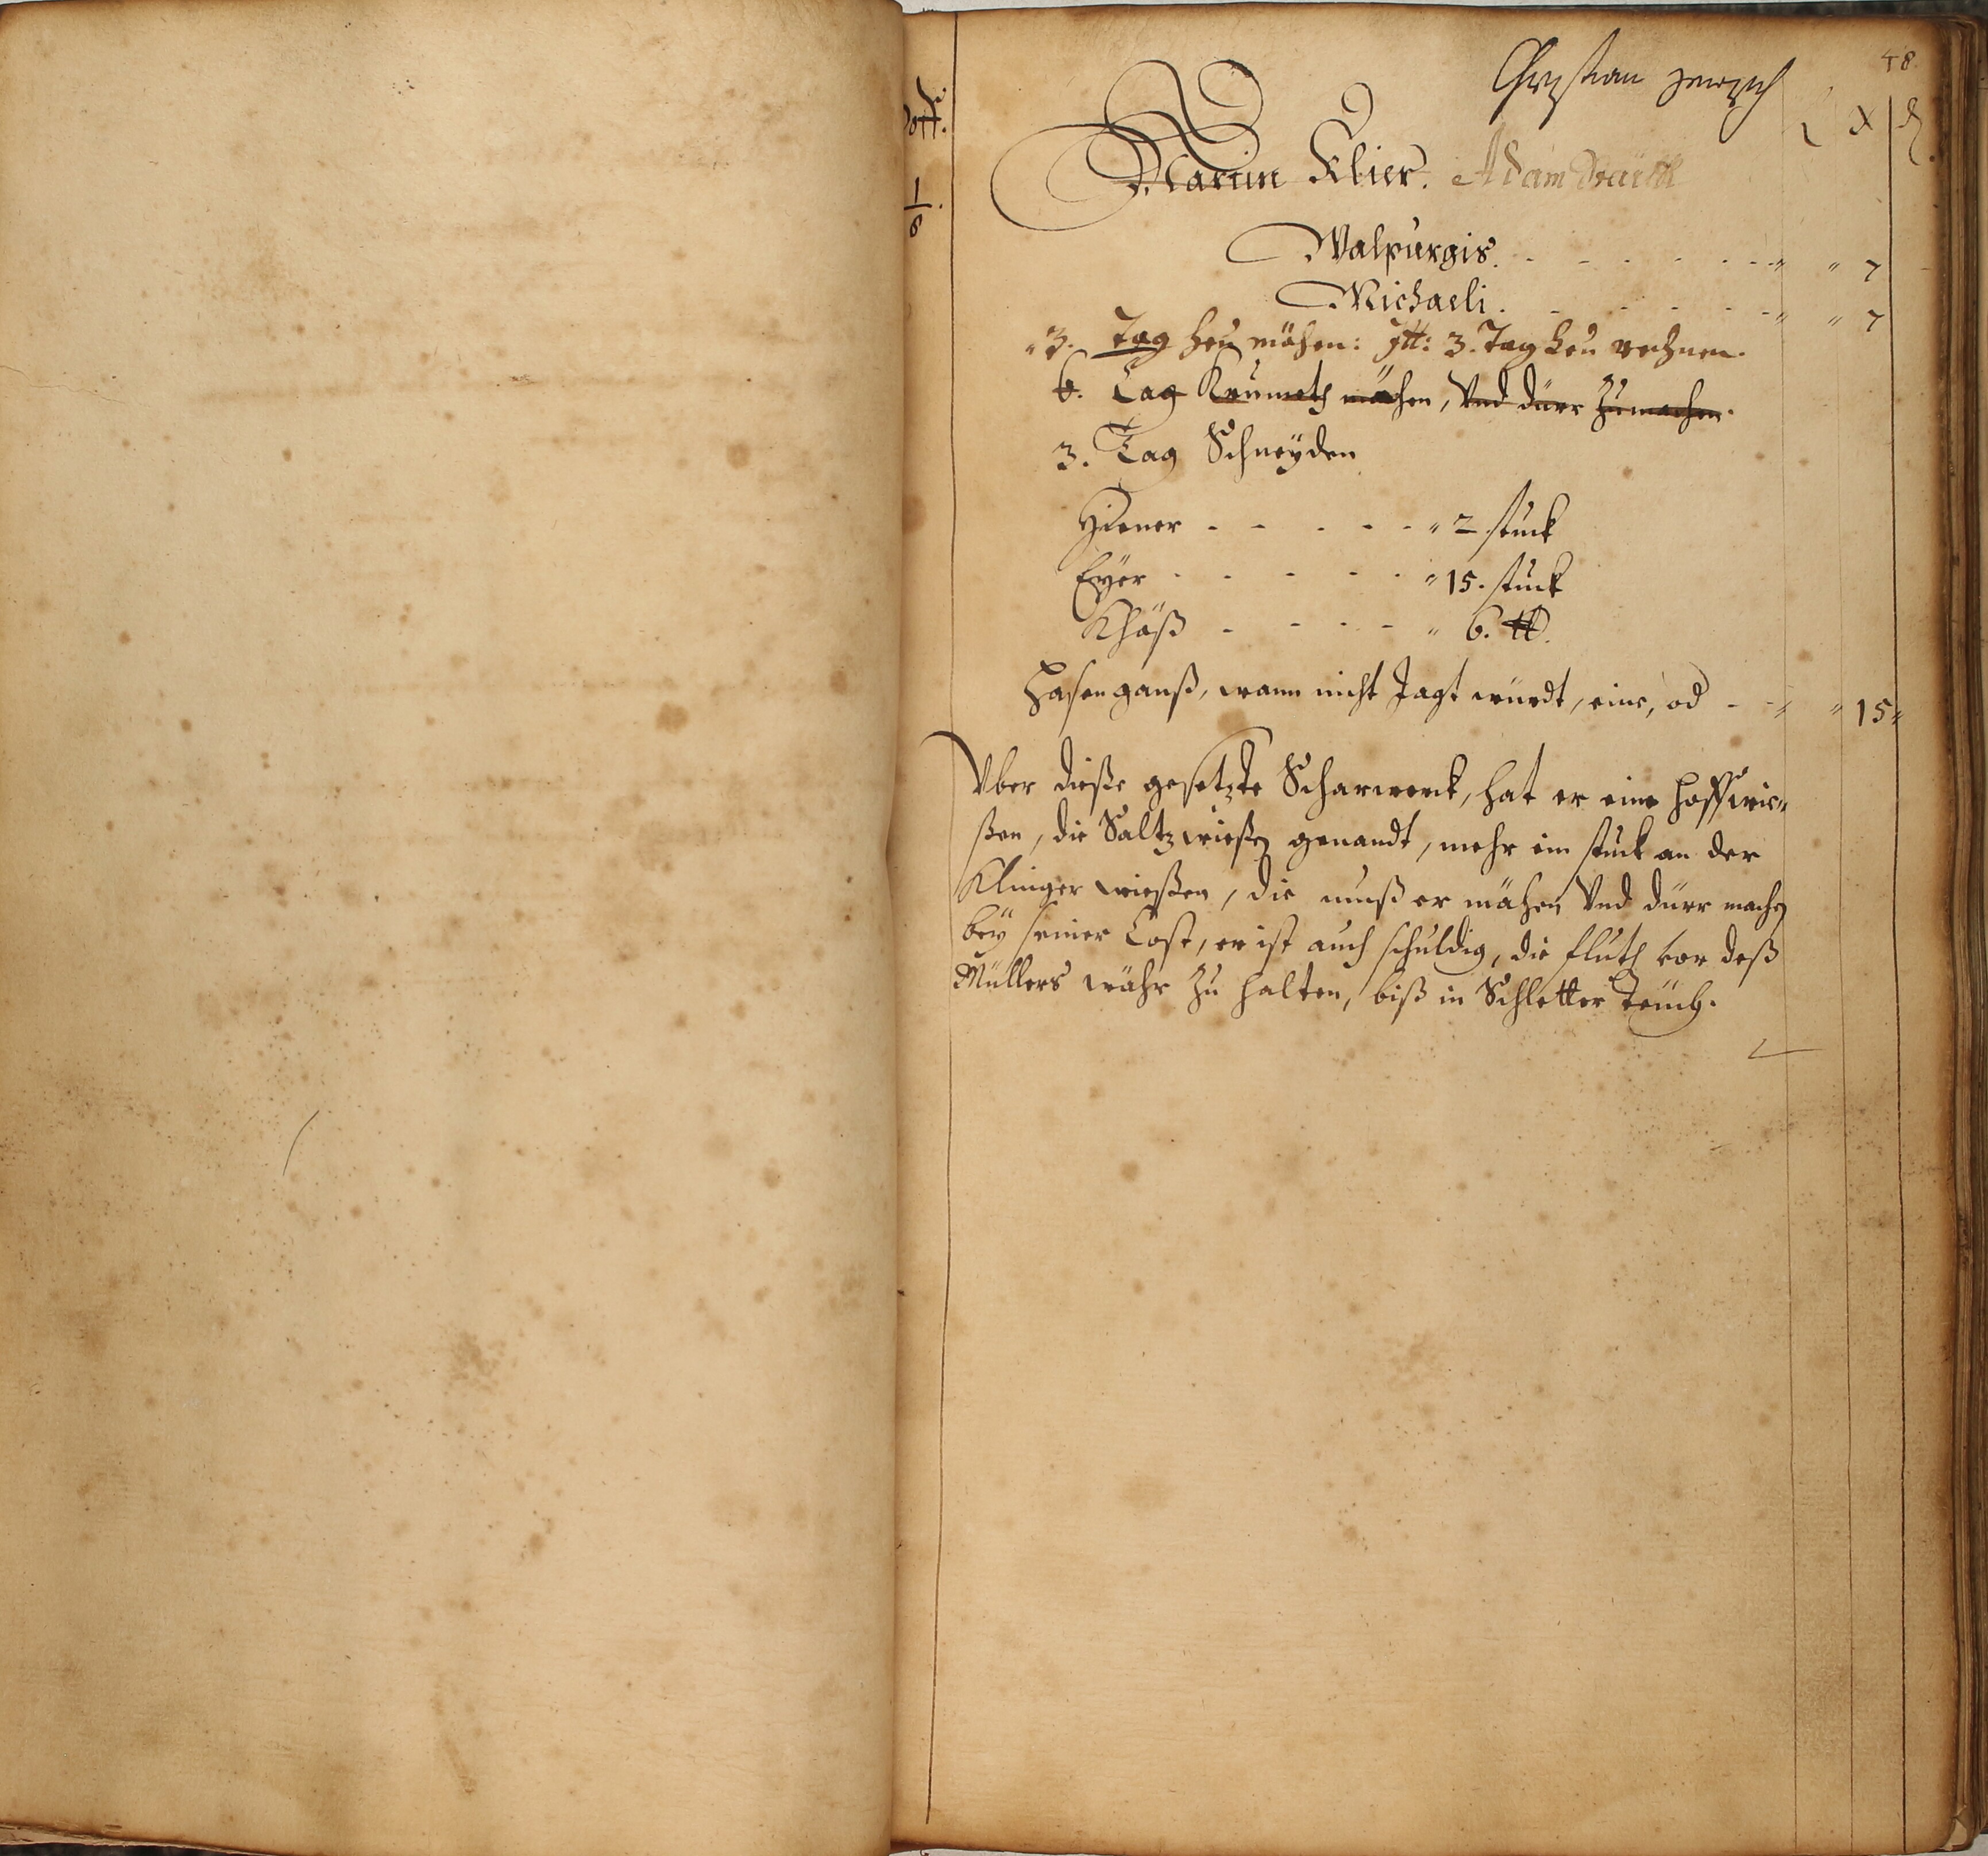 48
Christian
Hoff.
1/8.
Martin Klier. Adam
Walpurgis. - - - - - - " " 7
Michaeli. - - - - - " " 7
" 3. Tag heu mähen: Itt: 3. Tag heu rechnen.
6. Tag Krumeth mähen, Vnd dürr zumachen.
3. Tag Schneyden
Hiener - - - - - " 2 stuck
Eyer - - - - - " 15. stuck
Khäß - - - - " 6. ℔.
Hasengarnß, wann nicht Jagt würdt, eins, od - - " " 15"
Vber dieße gesetzte Scharwerck, hat er eine hoffwie„
ßen, die Saltzwießen genandt, mehr ein stuck an der
Klinger wießen, die muß er mähen Vnd dürr machen
bey seiner Cost, er ist auch schuldig, die fluth vor deß
Müllers währ zu halten, biß in Schletter Teuch.